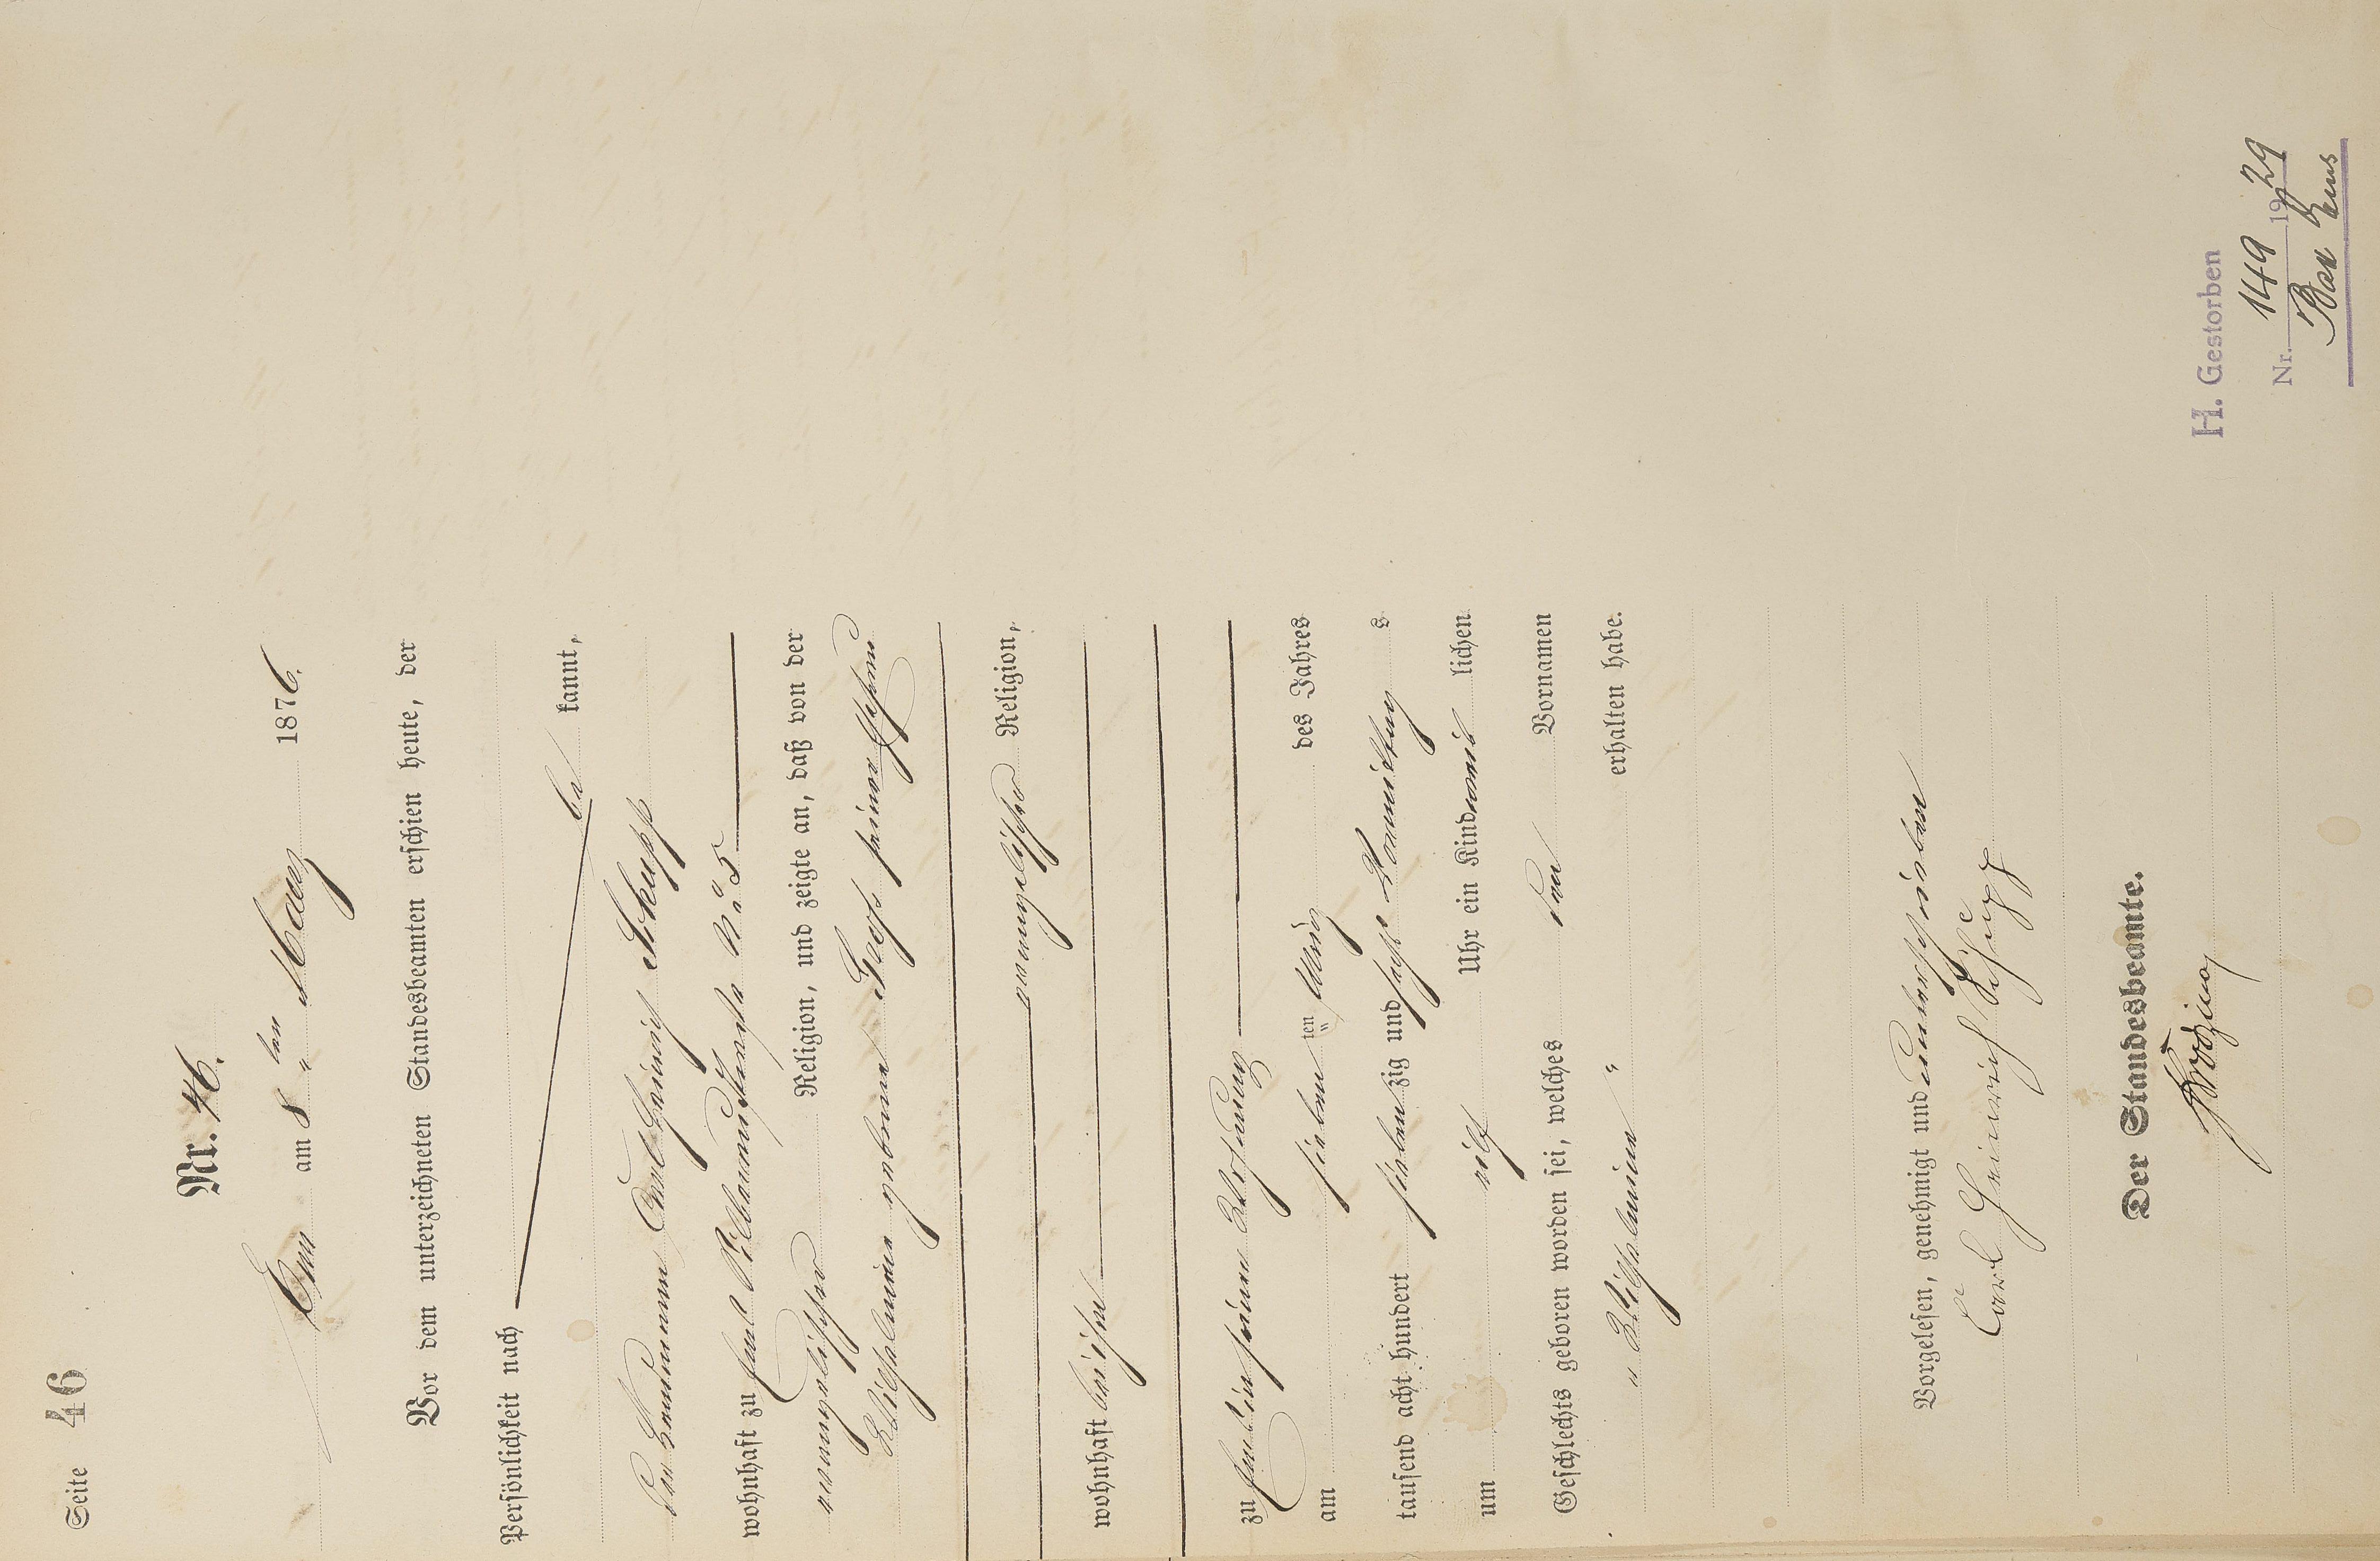 Seite 46
Nr. 46.
Ems am 8 ten März 1876.
Vor dem unterzeichneten Standesbeamten erschien heute, der
Persönlichkeit nach
be kannt,
der Carl Heinrich Schupp
wohnhaft zu Ems No 5
evangelischer Religion, und zeigte an, daß von der
Wilhelmine geborene seiner Ehefrau
evangelischer Religion,
wohnhaft bei ihm
zu Ems in seiner Wohnung
am sieben ten März des Jahres
tausend acht hundert sieben zig und sechs Vormittags
um elf Uhr ein Kind weib lichen
Geschlechts geboren worden sei, welches den Vornamen
„Wilhelmine“ erhalten habe.
Vorgelesen, genehmigt und unterschrieben
Carl Heinrich Schupp
Der Standesbeamte.
H. Gestorben
Nr. 149 1929
Bad Ems